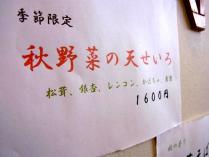 季節限定
秋野菜の天せいろ
松茸、銀杏、レンコン、かぼちゃ、
1600円